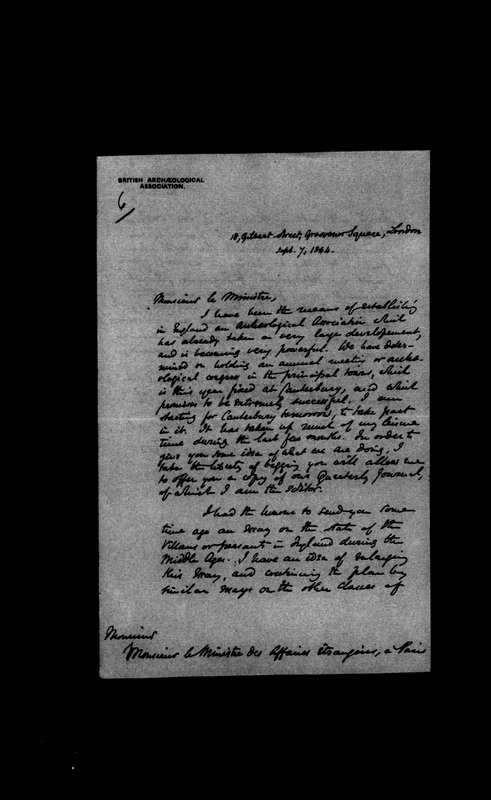 BRITISH ARCHÆOLOGICAL
ASSOCIATION.
6
18, Gilbert Street, Grosvenor Square, London
Sept. 7, 1844.
Monsieur le Ministre,
I have been the means of establishing
in England an Archæological Association which
has already taken a very large developement,
and is becoming very powerful. We have deter-
mined on holding an annual meeting or archæ-
ological congress in the principal towns, which
is this year fixed at Canterbury, and which
promises to be extremely successful. I am
starting for Canterbury tomorrow, to take part
in it. It has taken up much of my leisure
time during the last few months. In order to
give you some idea of what we are doing, I
take the liberty of begging you will allow me
to offer you a copy of our Quarterly Journal,
of which I am the Editor.
I had the honour to send you some
time ago an essay on the state of the
Villans or peasants in England during the
Middle Ages. I have an idea of enlarging
this essay, and continuing the plan by
similar essays on the other classes of
Monsieur
Monsieur le Ministre des Affaires Etrangères, à Paris